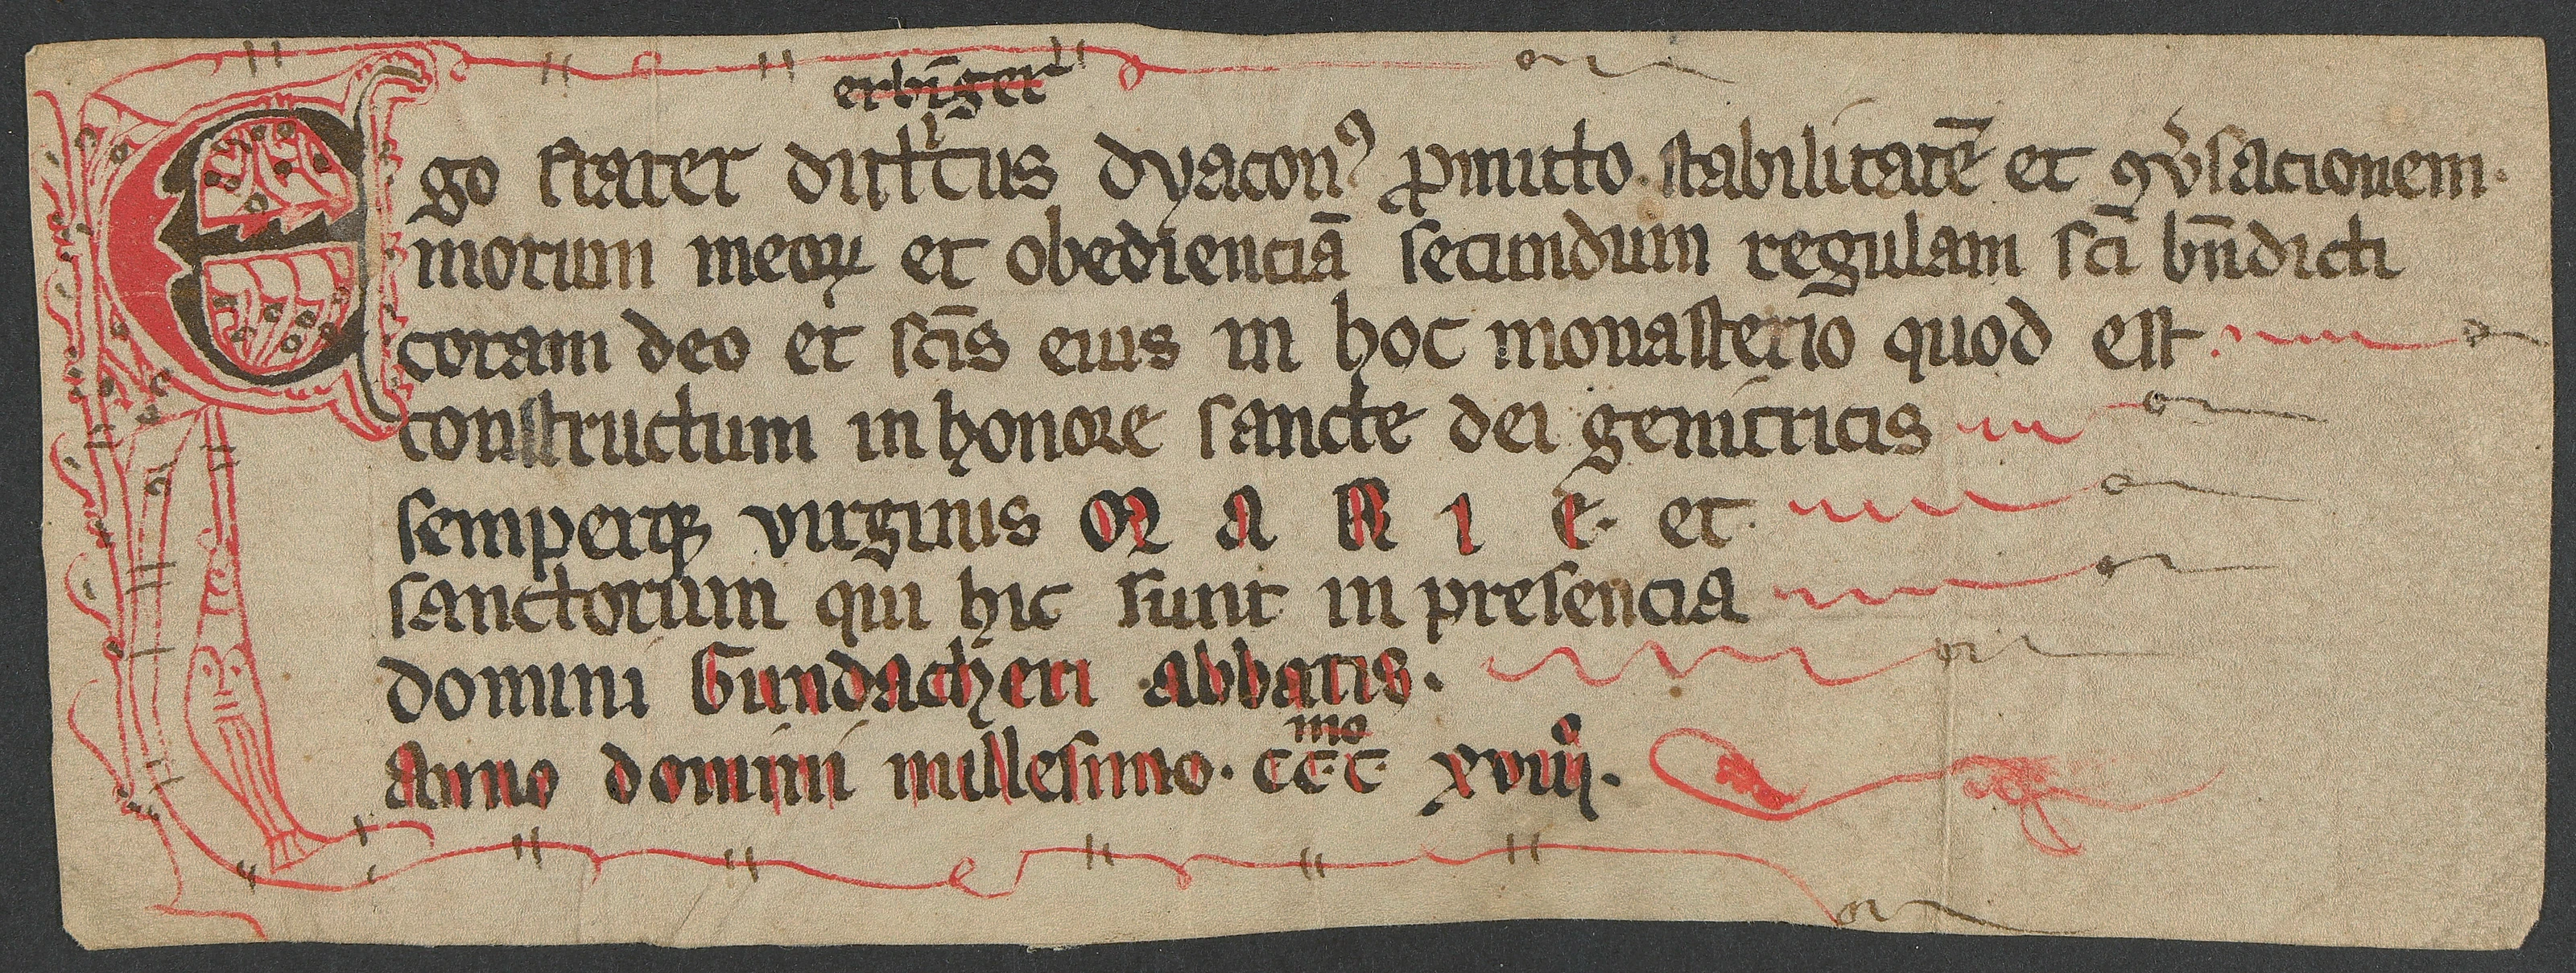 erbi̅ger
Ego frater dittricus dyacon⁹ ꝓmitto stabilitatē et ꝯv̓sacionem.
morum meoꝝ et obedienciā secundum regulam sc̄i bn̄dicti
coram deo et sc̄is eius in hoc monasterio quod est
constructum in honore sancte dei genitricis
semperqꝫ virginis MARIE. et
sanctorum qui hic sunt in presencia
domini Gundacheri abbatis.
Anno domini millesimo. ccc mo xviiij.